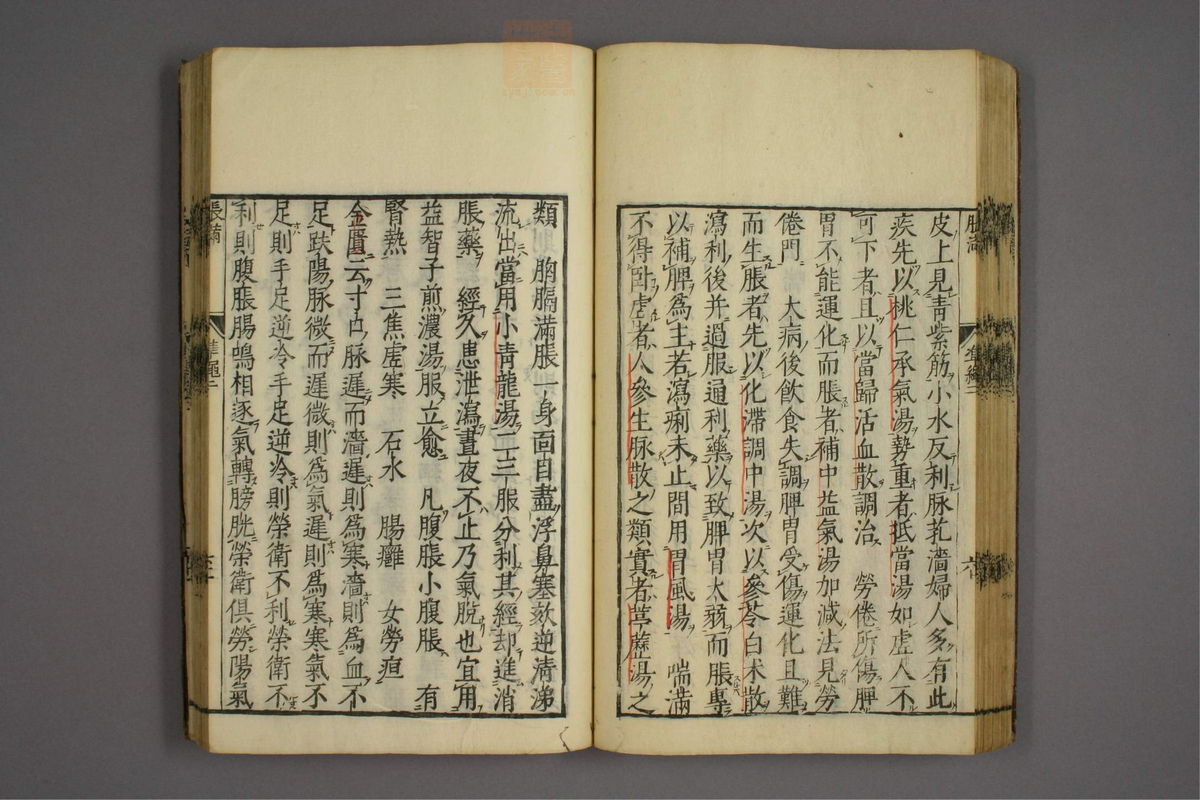 皮上見靑紫筋小水反利脉芤濇婦人多有此
疾先以桃仁承氣湯勢重者抵當湯如虛人不
可下者且以當歸活血散調治　勞倦所傷脾
胃不能運化而脹者補中益氣湯加減法見勞
倦門　大病後飮食失調脾胃受傷運化且難
而生脹者先以化滯調中湯次以參苓白朮散
瀉利後并過服通利藥以致脾胃太弱而脹專
以補脾爲主若瀉痢未止間用胃風湯　喘滿
不得臥虛者人參生脉散之類實者葶藶湯之
類　胸膈滿脹一身面目盡浮鼻塞欬逆清涕
流出當用小靑龍湯二三服分利其經却進消
脹藥　經久患泄瀉晝夜不止乃氣脫也宜用
益智子煎濃湯服立愈　凡腹脹小腹脹　有
腎熱　三焦虛寒　石水　腸癰　女勞疸
金匱云寸口脉遲而濇遲則爲寒濇則爲血不
足趺陽脉微而遲微則爲氣遲則爲寒寒氣不
足則手足逆冷手足逆冷則榮衛不利榮衛不
利則腹脹腸鳴相逐氣轉膀胱榮衛俱勞陽氣
脹滿